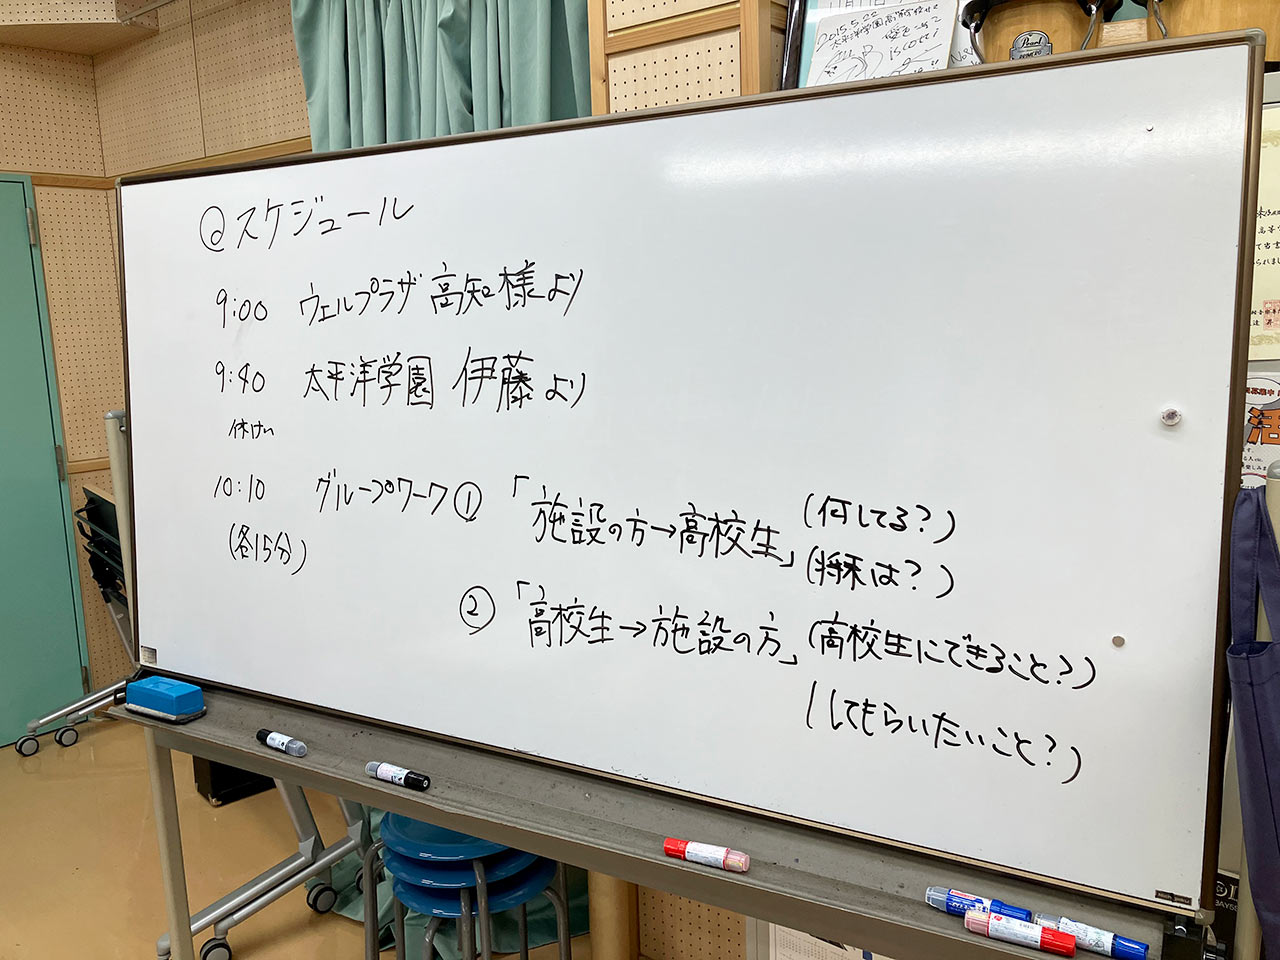 @スケジュール
9:00 ウェルプラザ高知様より
9:40 太平洋学園 伊藤より
休けい
10:10 グループワーク① 「施設の方→高校生」(何してる?)
(各15分) (将来は?)
② 「高校生→施設の方」(高校生にできること?)
(してもらいたいこと?)
2015.5.22
太平洋学園高等学校
Pearl
活